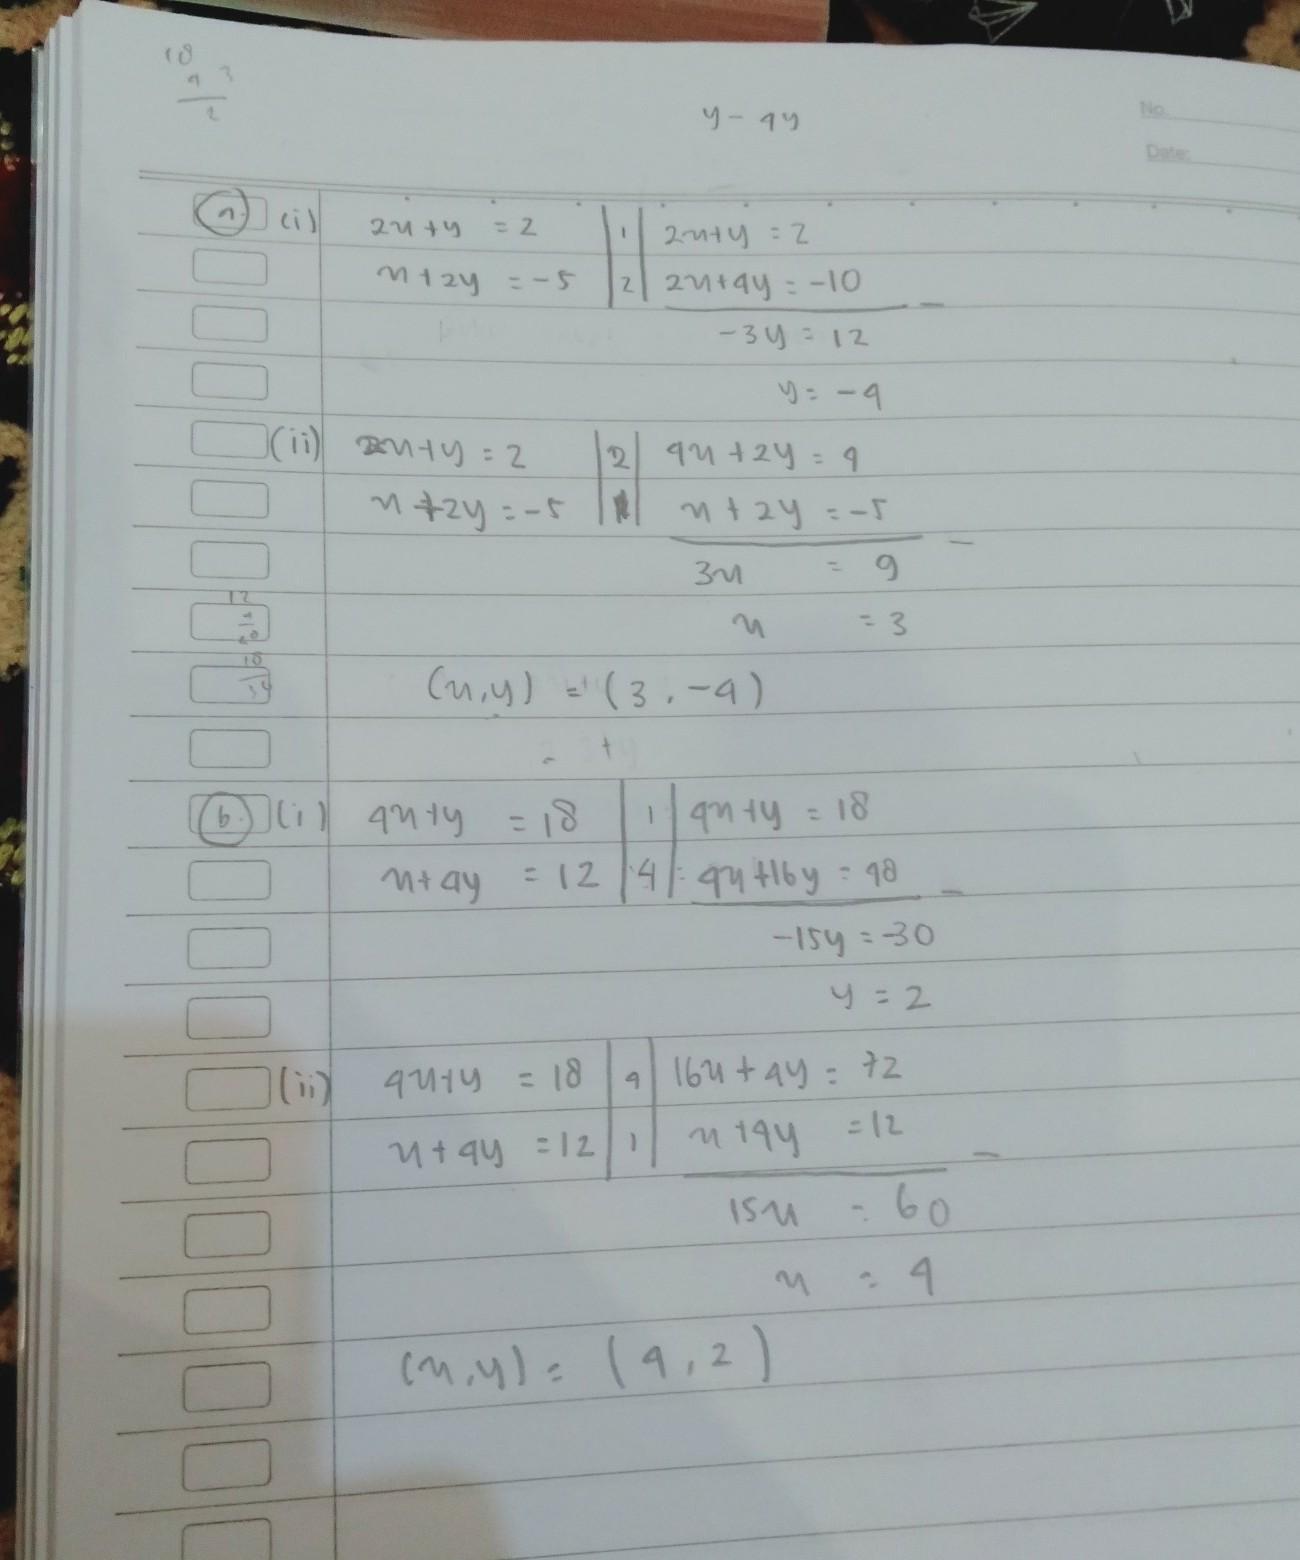 18
4 3
2
y - 4y
No.
Date:
a. (i) 2x + y = 2 | 1 | 2x + y = 2
x + 2y = -5 | 2 | 2x + 4y = -10 -
-3y = 12
y = -4
(ii) 2x + y = 2 | 2 | 4x + 2y = 4
x + 2y = -5 | 1 | x + 2y = -5 -
3x = 9
12
x = 3
18
(x, y) = (3, -4)
b. (i) 4x + y = 18 | 1 | 4x + y = 18
x + 4y = 12 | 4 | 4x + 16y = 48 -
-15y = -30
y = 2
(ii) 4x + y = 18 | 4 | 16x + 4y = 72
x + 4y = 12 | 1 | x + 4y = 12 -
15x = 60
x = 4
(x, y) = (4, 2)